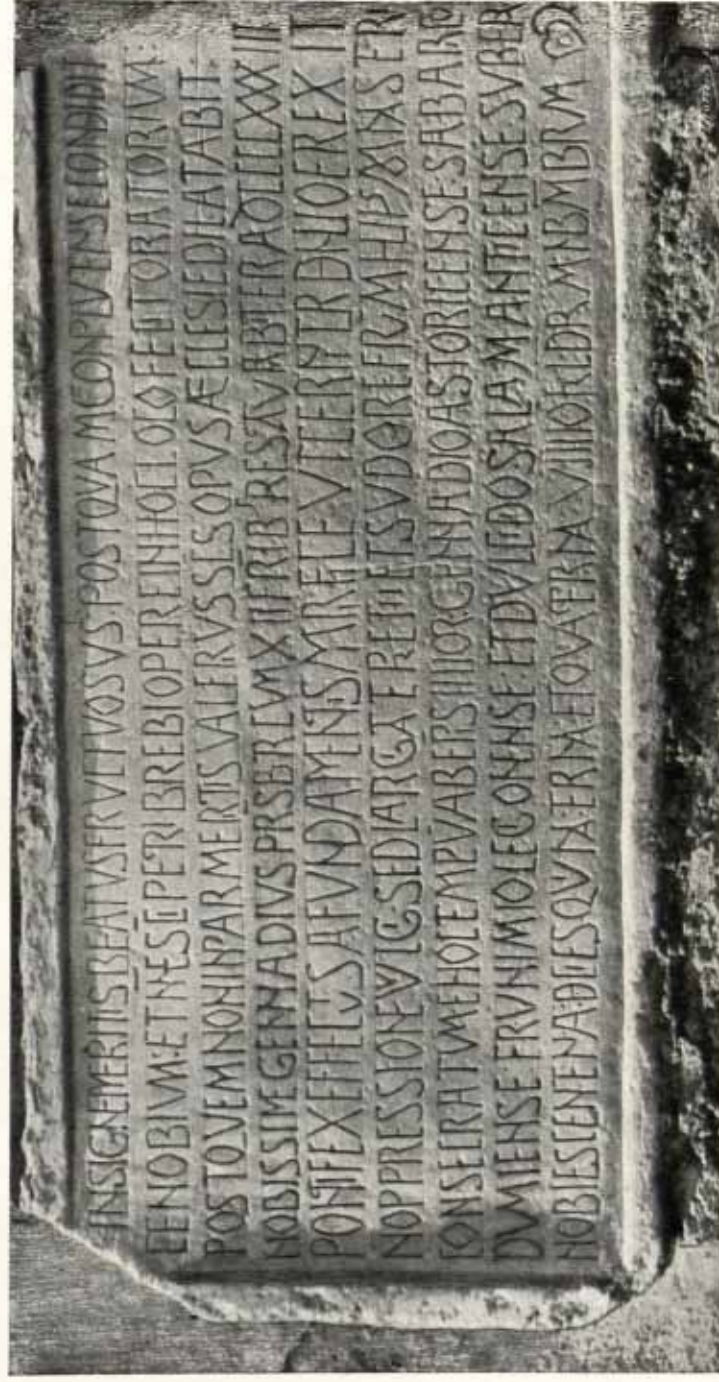 INSIGNE MERITIS BEATUS FRUCTUOSUS POSTQUAM CONPLUTENSE CONDIDIT
CENOBIUM: ET NNE SCI PETRI BREBI OPERE IN HOC LOCO FECIT ORATORIUM:
POST QUEM NON INPAR MERITIS VALERIUS SCS OPUS ÆCLESIE DILATABIT.
NOBISSIME GENNADIUS PRSBR CUM XII FRIB RESTAURABIT ERA DCCCCXXXIII
PONTIFEX EFFECTUS A FUNDAMENTIS MIRIFICE UT CERNITUR DENUO EREXIT
N OPPRESSIONE VULGI SED LARGITATE PRETII ET SUDORE FRUM HUIUS MNSTRII
CONSECRATUM E HOC TEMPLUM AB EPS IIIIOR GENNADIO ASTORICENSE SABARICO
DUMIENSE FRUNIMIO LEGIONNSE: ET DULCIDIO SALAMANTICENSE SUB ERA
NOBIES CENTENA: DECIES QUINA: TERNA: ET QUATERNA: VIIII O KLDRM NBMBRM